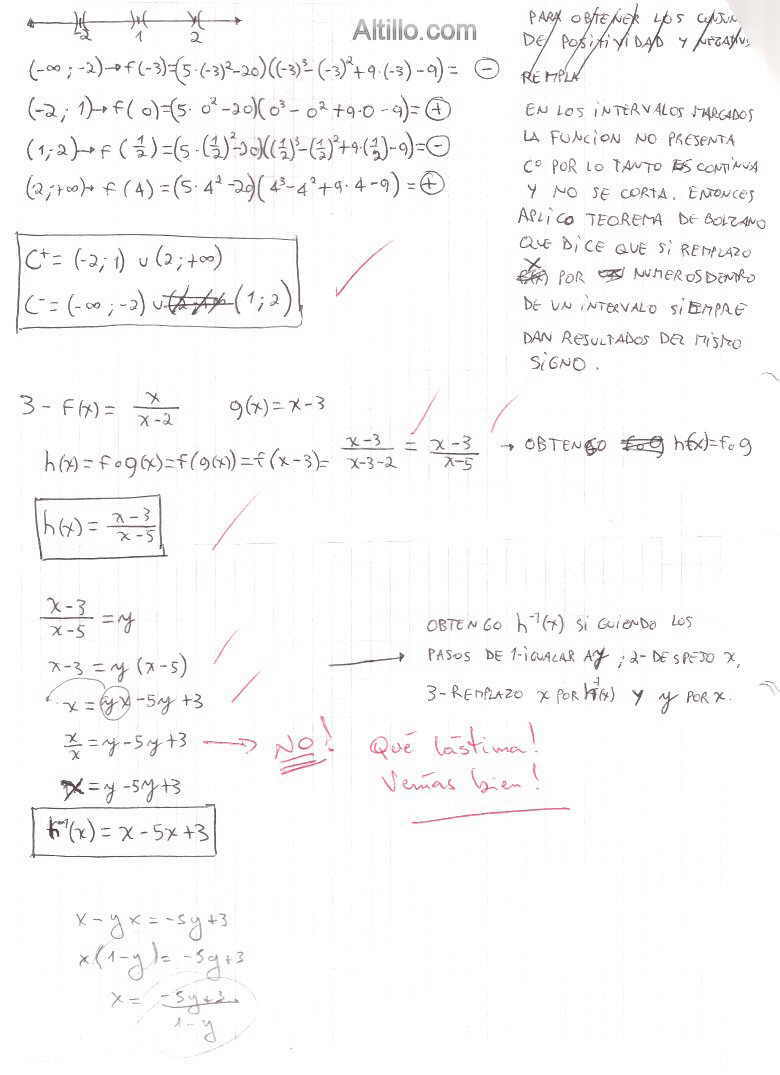 Altillo.com
-2 1 2
(-∞ ; -2) → f(-3)=(5·(-3)²-20)((-3)³-(-3)²+9·(-3)-9)= ⊖
(-2; 1) → f( 0)=(5· 0²-20)(0³-0²+9·0-9)= ⊕
(1; 2) → f(1/2)=(5·(1/2)²-20)((1/2)³-(1/2)²+9·(1/2)-9)= ⊖
(2;+∞) → f(4)=(5·4²-20)(4³-4²+9·4-9)= ⊕
C⁺= (-2; 1) ∪ (2; +∞)
C⁻= (-∞ ; -2) ∪ (1; 2)
PARA OBTENER LOS CONJUN
DE POSITIVIDAD Y NEGATIVI
REMPLA
EN LOS INTERVALOS MARCADOS
LA FUNCION NO PRESENTA
C⁰ POR LO TANTO ES CONTINUA
Y NO SE CORTA. ENTONCES
APLICO TEOREMA DE BOLZANO
QUE DICE QUE SI REMPLAZO
X POR NUMEROS DENTRO
DE UN INTERVALO SIEMPRE
DAN RESULTADOS DEL MISMO
SIGNO.
3- f(x)= x/(x-2) g(x)=x-3
h(x)=f∘g(x)=f(g(x))=f(x-3)= (x-3)/(x-3-2) = (x-3)/(x-5) → OBTENGO f∘g h(x)=f∘g
h(x)= (x-3)/(x-5)
(x-3)/(x-5) = y
x-3 = y (x-5)
x = yx-5y+3
x/x = y-5y+3 → NO! Qué lástima!
Venías bien!
x = y-5y+3
h⁻¹(x) = x-5x+3
OBTENGO h⁻¹(x) SIGUIENDO LOS
PASOS DE 1-IGUALAR A y ; 2-DESPEJO x,
3-REMPLAZO x POR h⁻¹(x) Y y POR x.
x-yx=-5y+3
x(1-y)=-5y+3
x= (-5y+3)/(1-y)